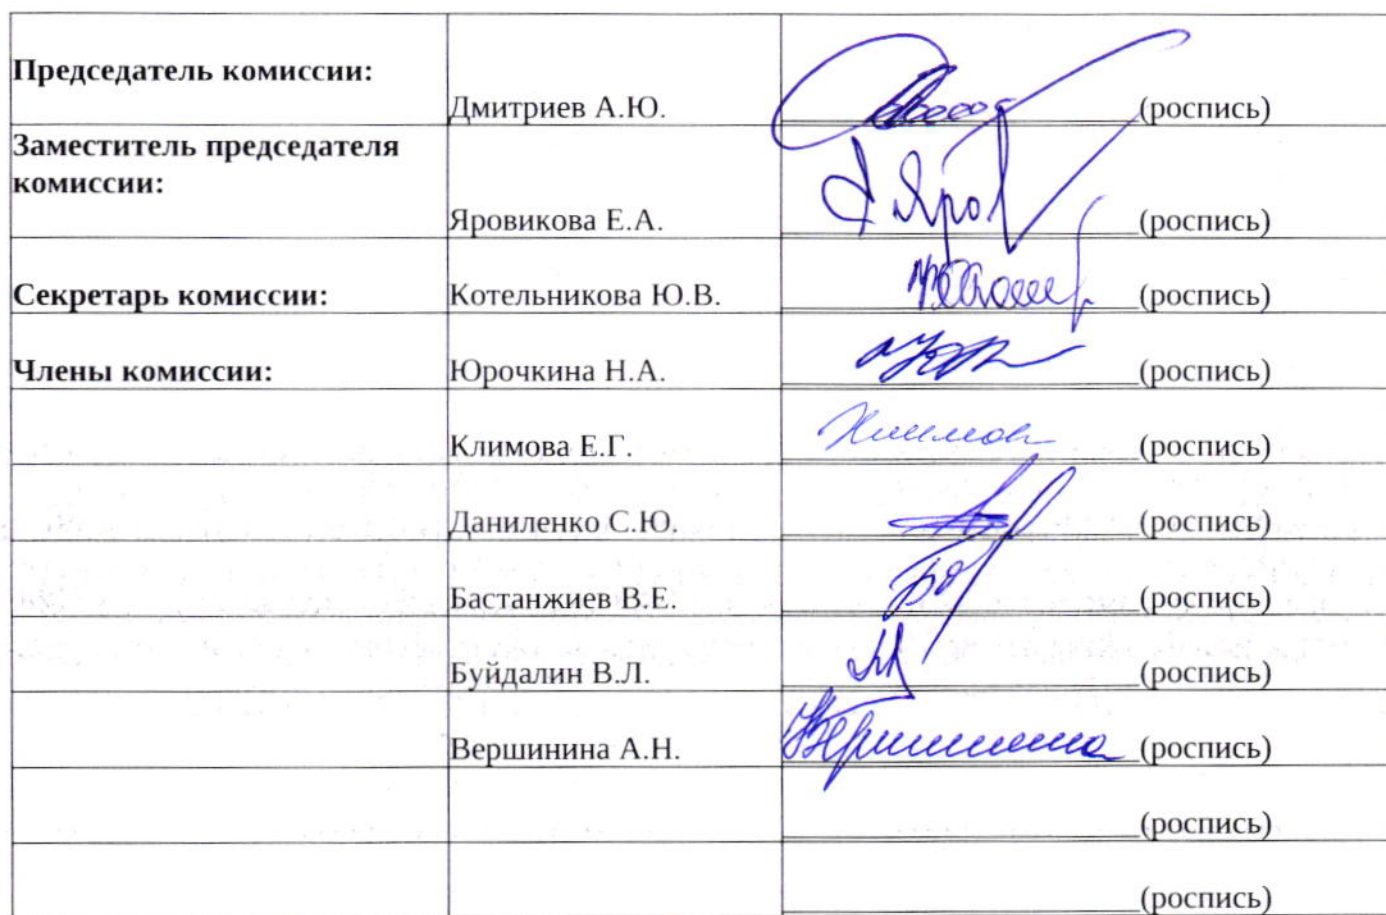 Председатель комиссии:
Дмитриев А.Ю. (роспись)
Заместитель председателя
комиссии:
Яровикова Е.А. (роспись)
Секретарь комиссии: Котельникова Ю.В. (роспись)
Члены комиссии: Юрочкина Н.А. (роспись)
Климова Е.Г. (роспись)
Даниленко С.Ю. (роспись)
Бастанжиев В.Е. (роспись)
Буйдалин В.Л. (роспись)
Вершинина А.Н. (роспись)
(роспись)
(роспись)